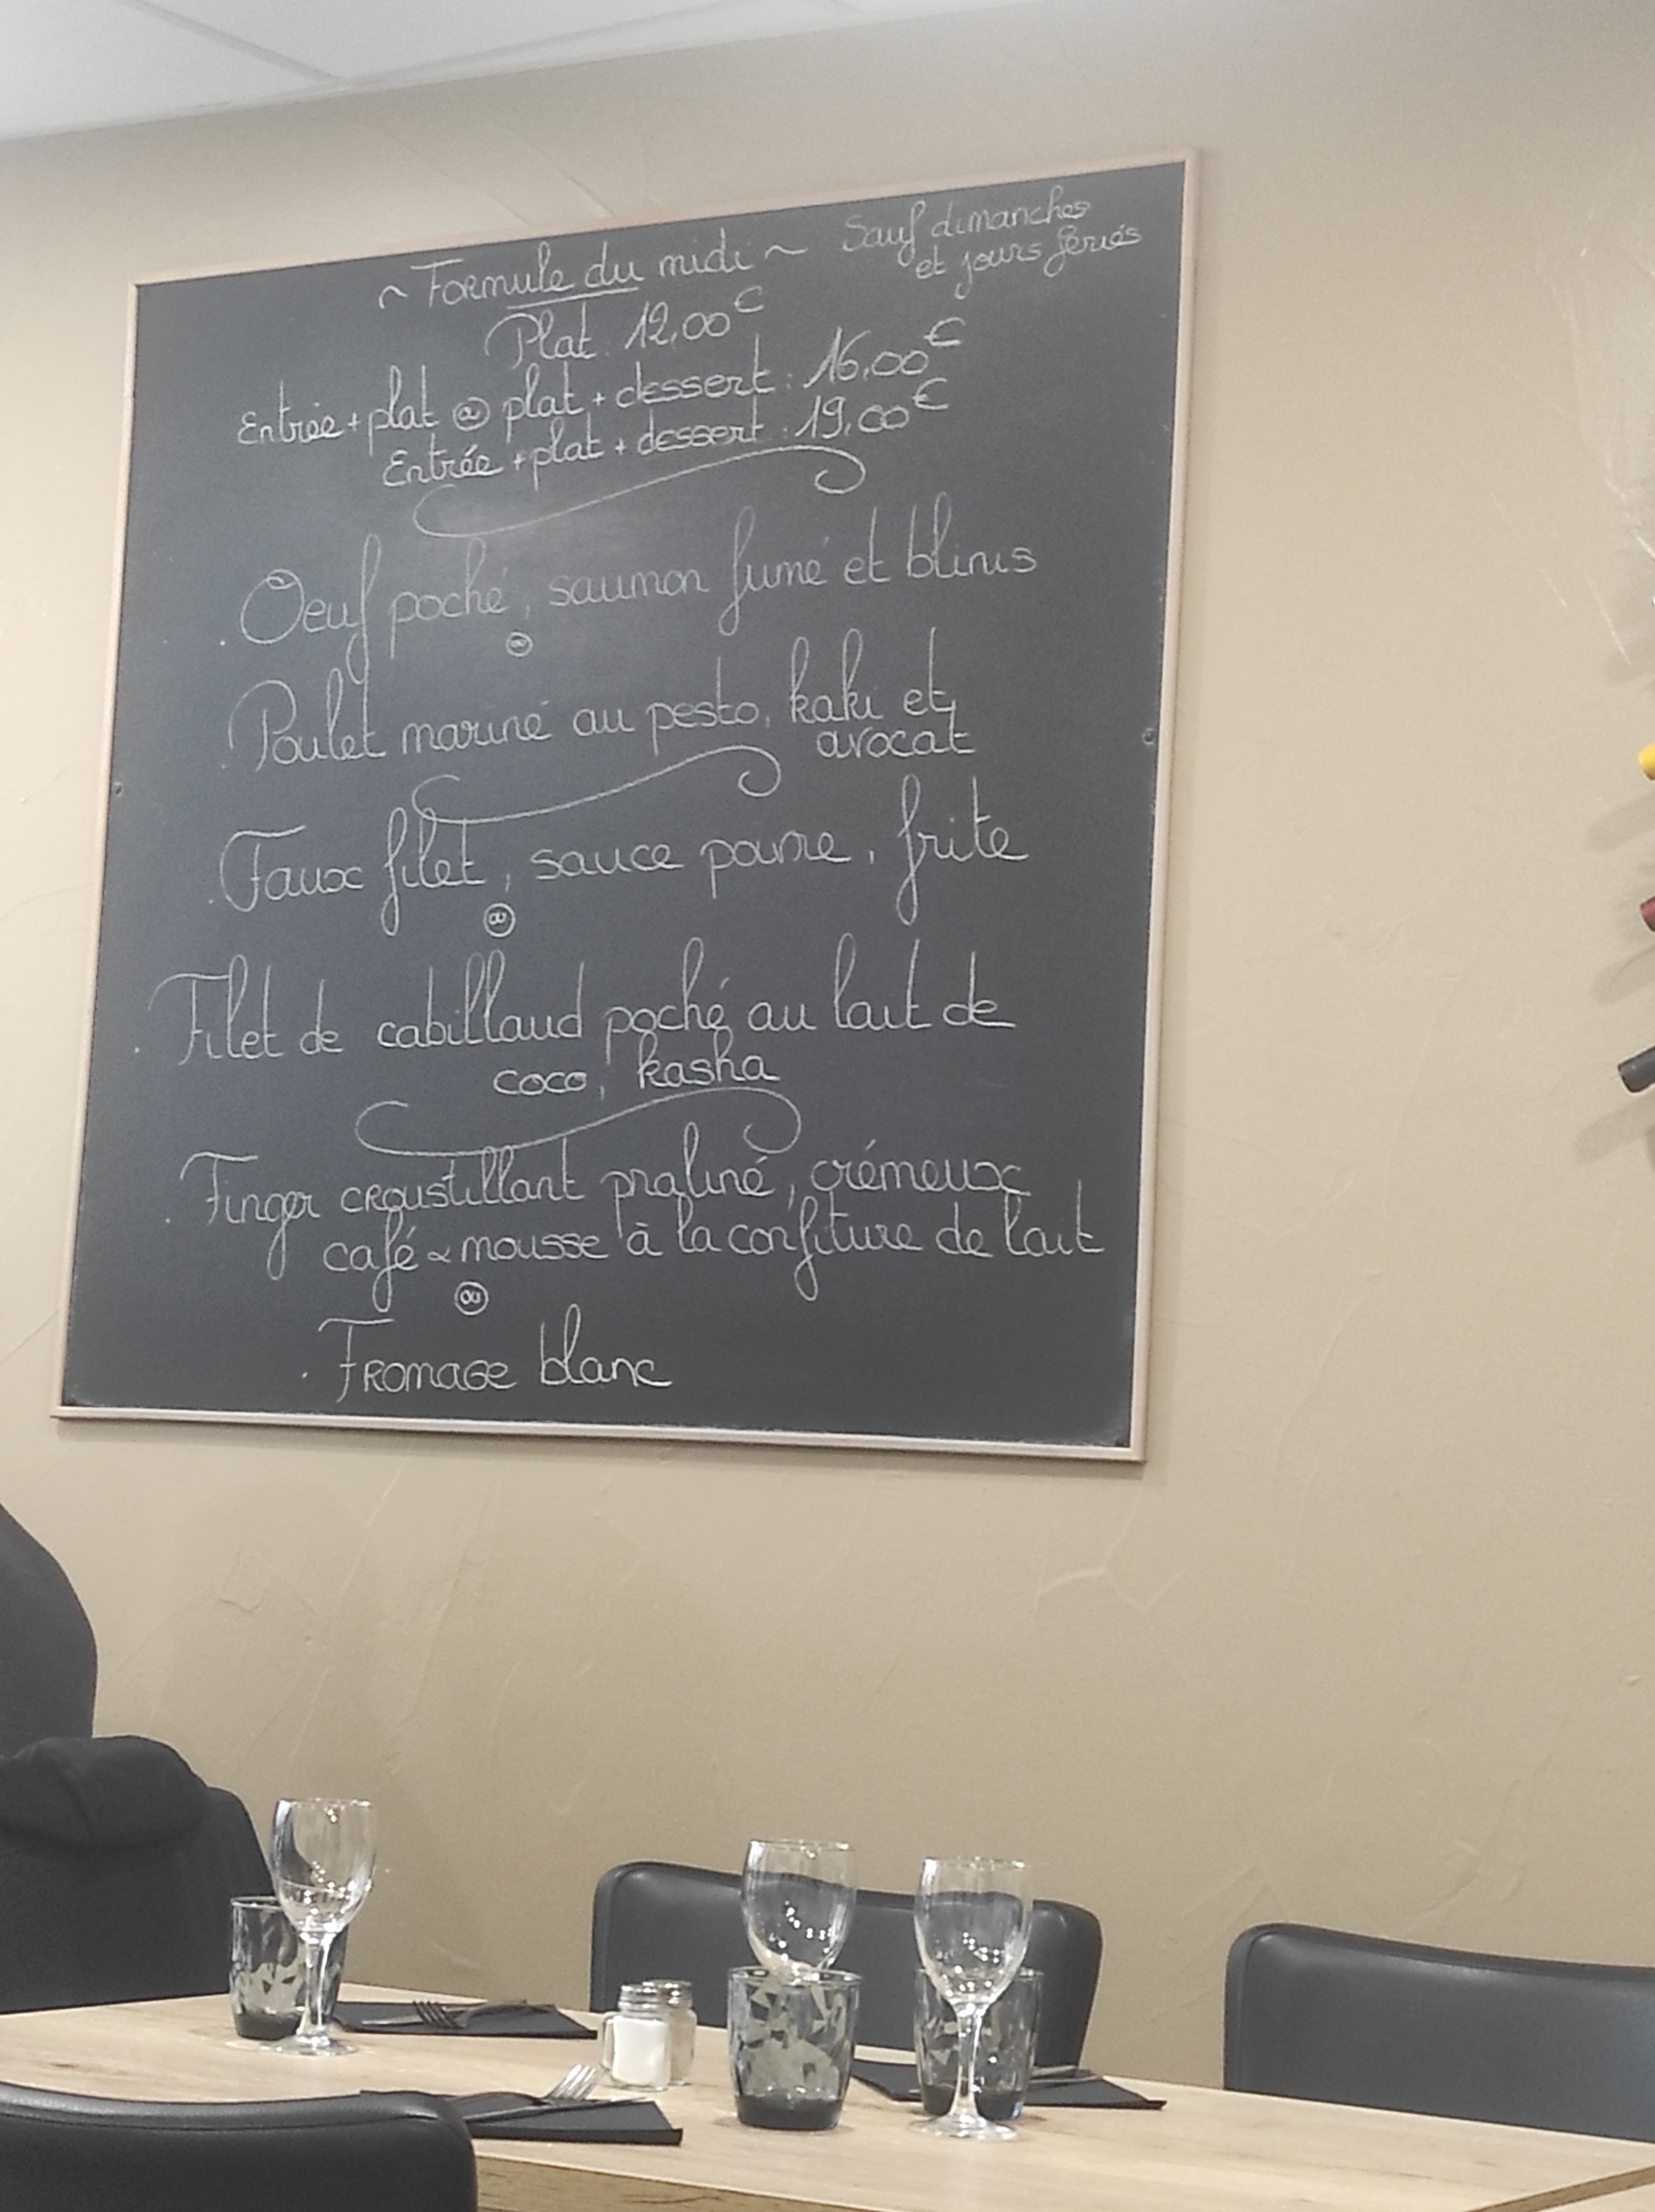 ~ Formule du midi ~ Sauf dimanches
et jours fériés
Plat : 12,00€
Entrée + plat ou plat + dessert : 16,00€
Entrée + plat + dessert : 19,00€
. Oeuf poché, saumon fumé et blinis
ou
. Poulet mariné au pesto, kaki et
avocat
. Faux filet, sauce poivre, frite
ou
. Filet de cabillaud poché au lait de
coco, kasha
. Finger croustillant praliné, crémeux
café & mousse à la confiture de lait
ou
. Fromage blanc